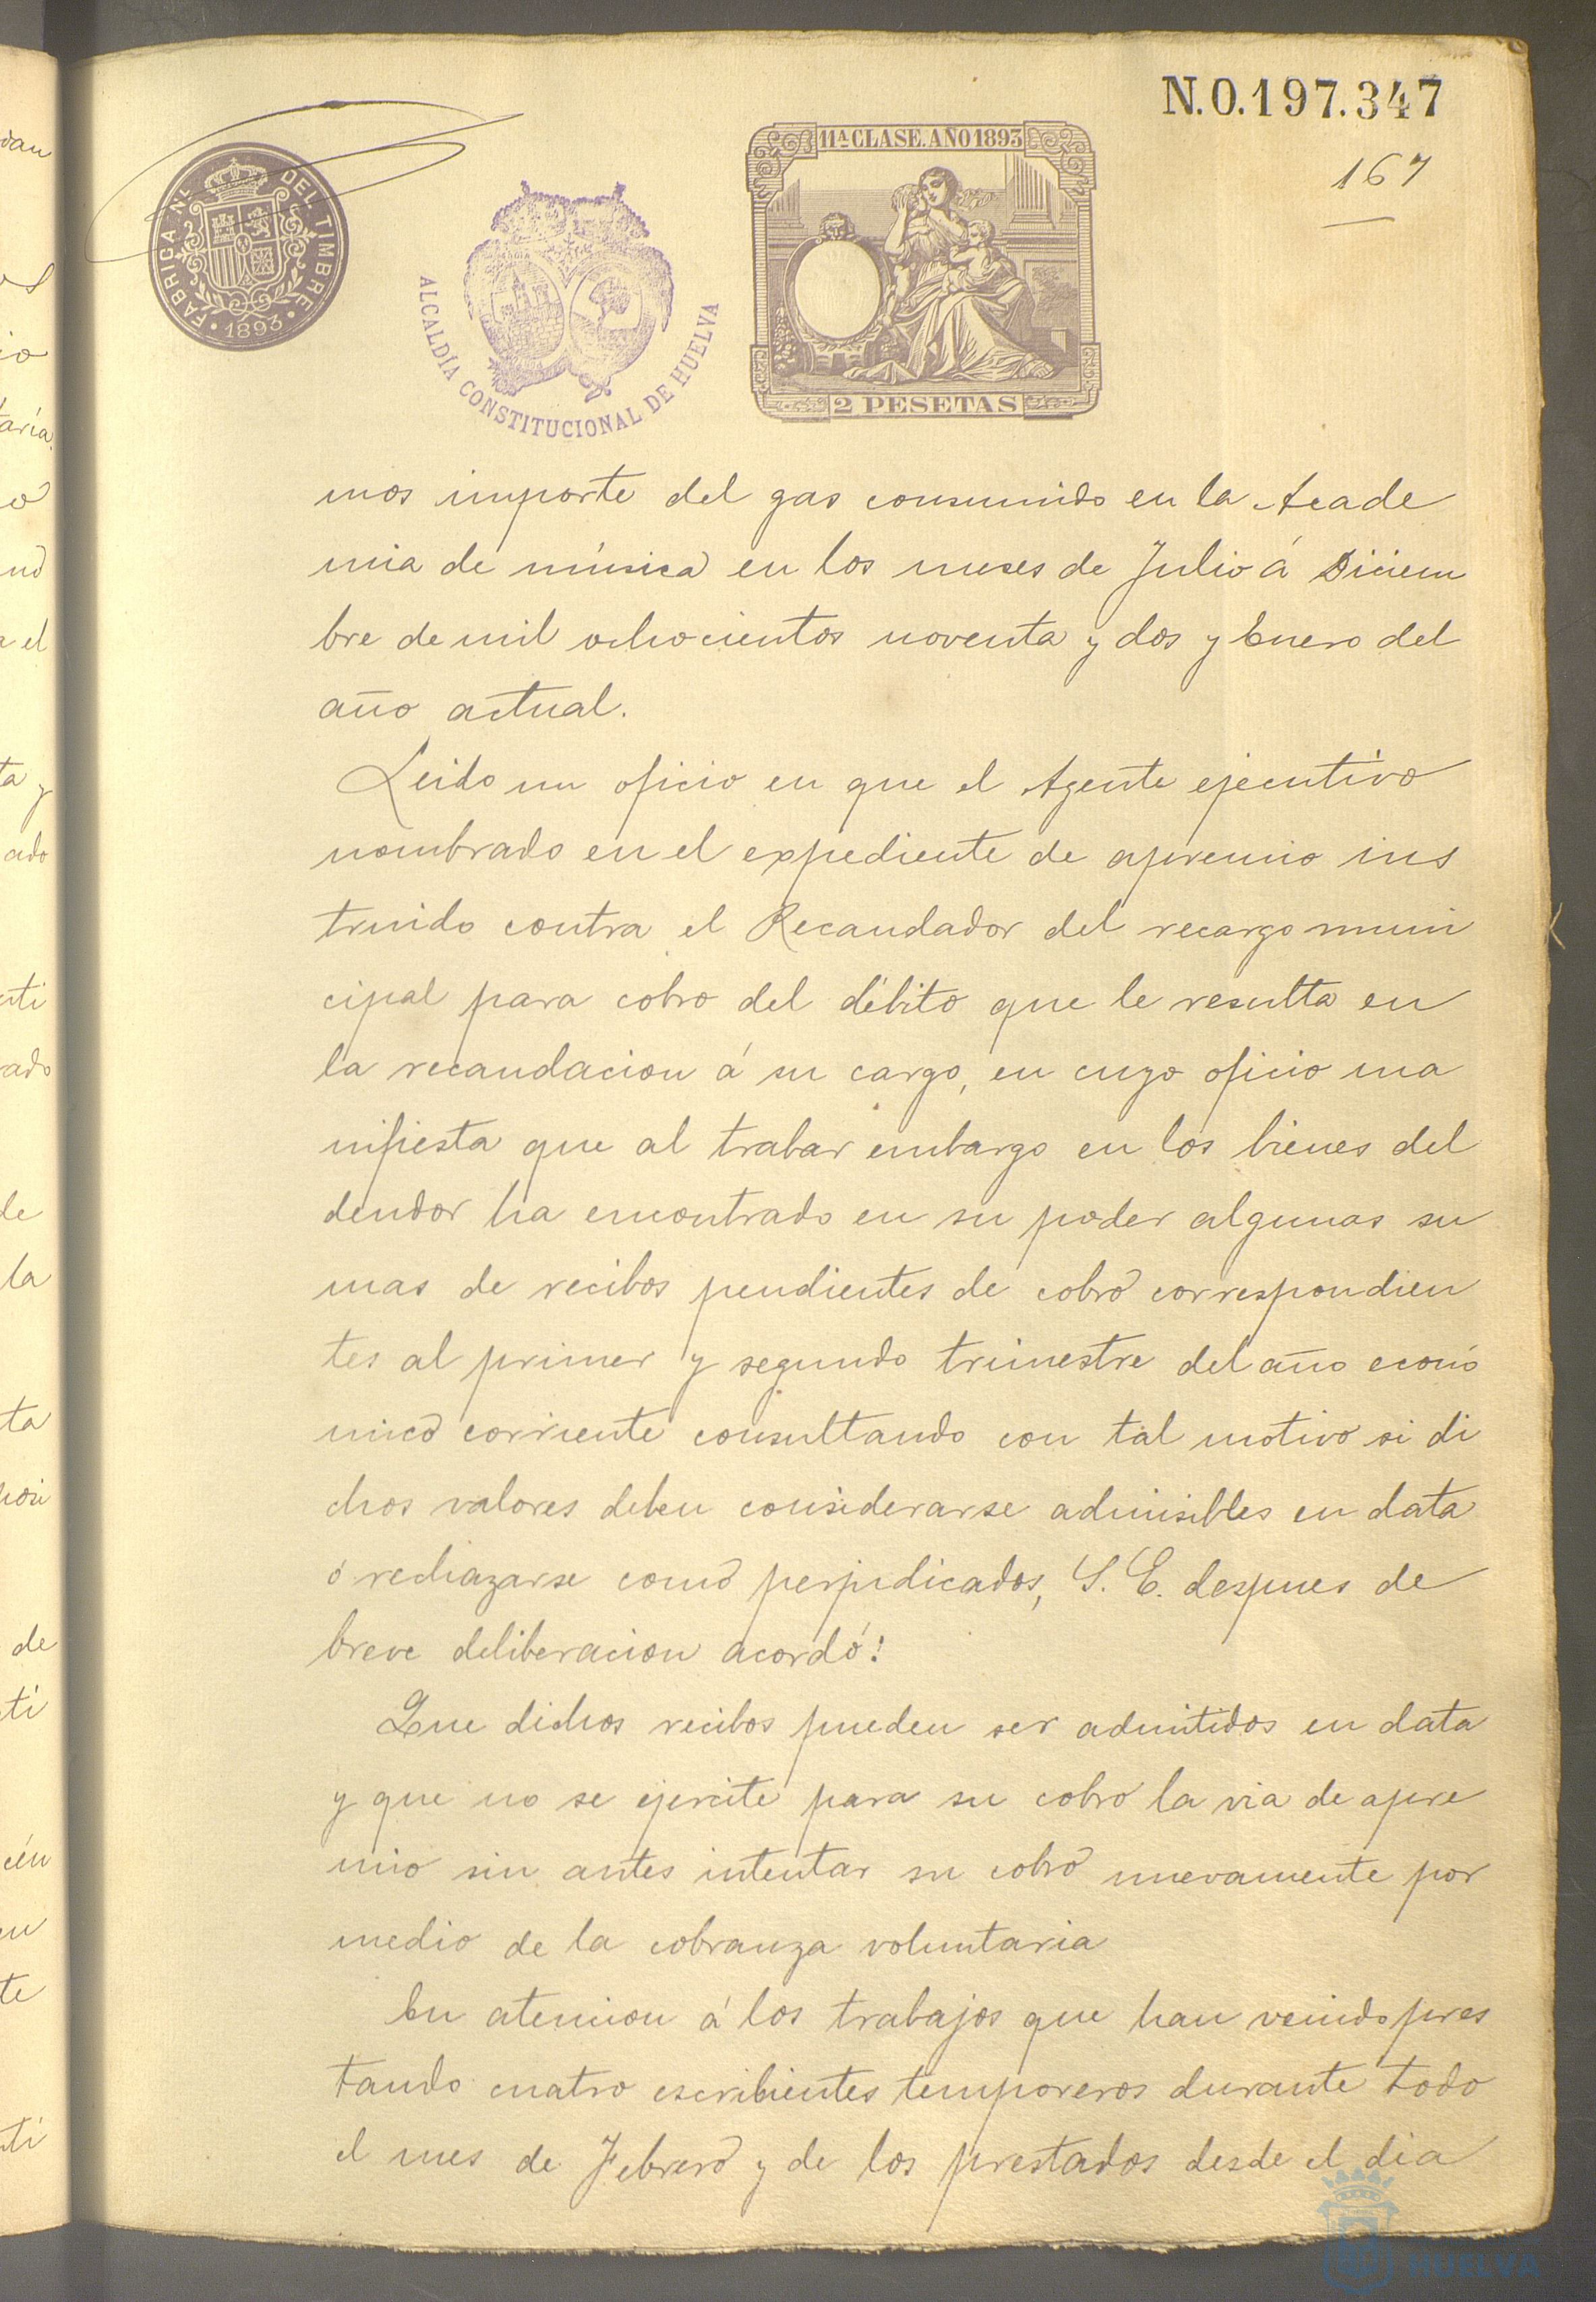 N.0.197.347
167
FABRICA NL. DEL TIMBRE
1893
ALCALDÍA CONSTITUCIONAL DE HUELVA
11ª CLASE. AÑO 1893
2 PESETAS
mos importe del gas consumido en la Acade
mia de música en los meses de Julio á Diciem
bre de mil ochocientos noventa y dos y Enero del
año actual.
Leido un oficio en que el Agente ejecutivo
nombrado en el expediente de apremio ins
truido contra el Recaudador del recargo muni
cipal para cobro del débito que le resulta en
la recaudacion á su cargo, en cuyo oficio ma
nifiesta que al trabar embargo en los bienes del
deudor ha encontrado en su poder algunas su
mas de recibos pendientes de cobro correspondien
tes al primer y segundo trimestre del año econó
mico corriente consultando con tal motivo si di
chos valores deben considerarse admisibles en data
ó rechazarse como perjudicados, S. E. despues de
breve deliberacion acordó:
Que dichos recibos pueden ser admitidos en data
y que no se ejercite para su cobro la via de apre
mio sin antes intentar su cobro nuevamente por
medio de la cobranza voluntaria
En atencion á los trabajos que han venido pres
tando cuatro escribientes temporeros durante todo
el mes de Febrero y de los prestados desde el dia
HUELVA